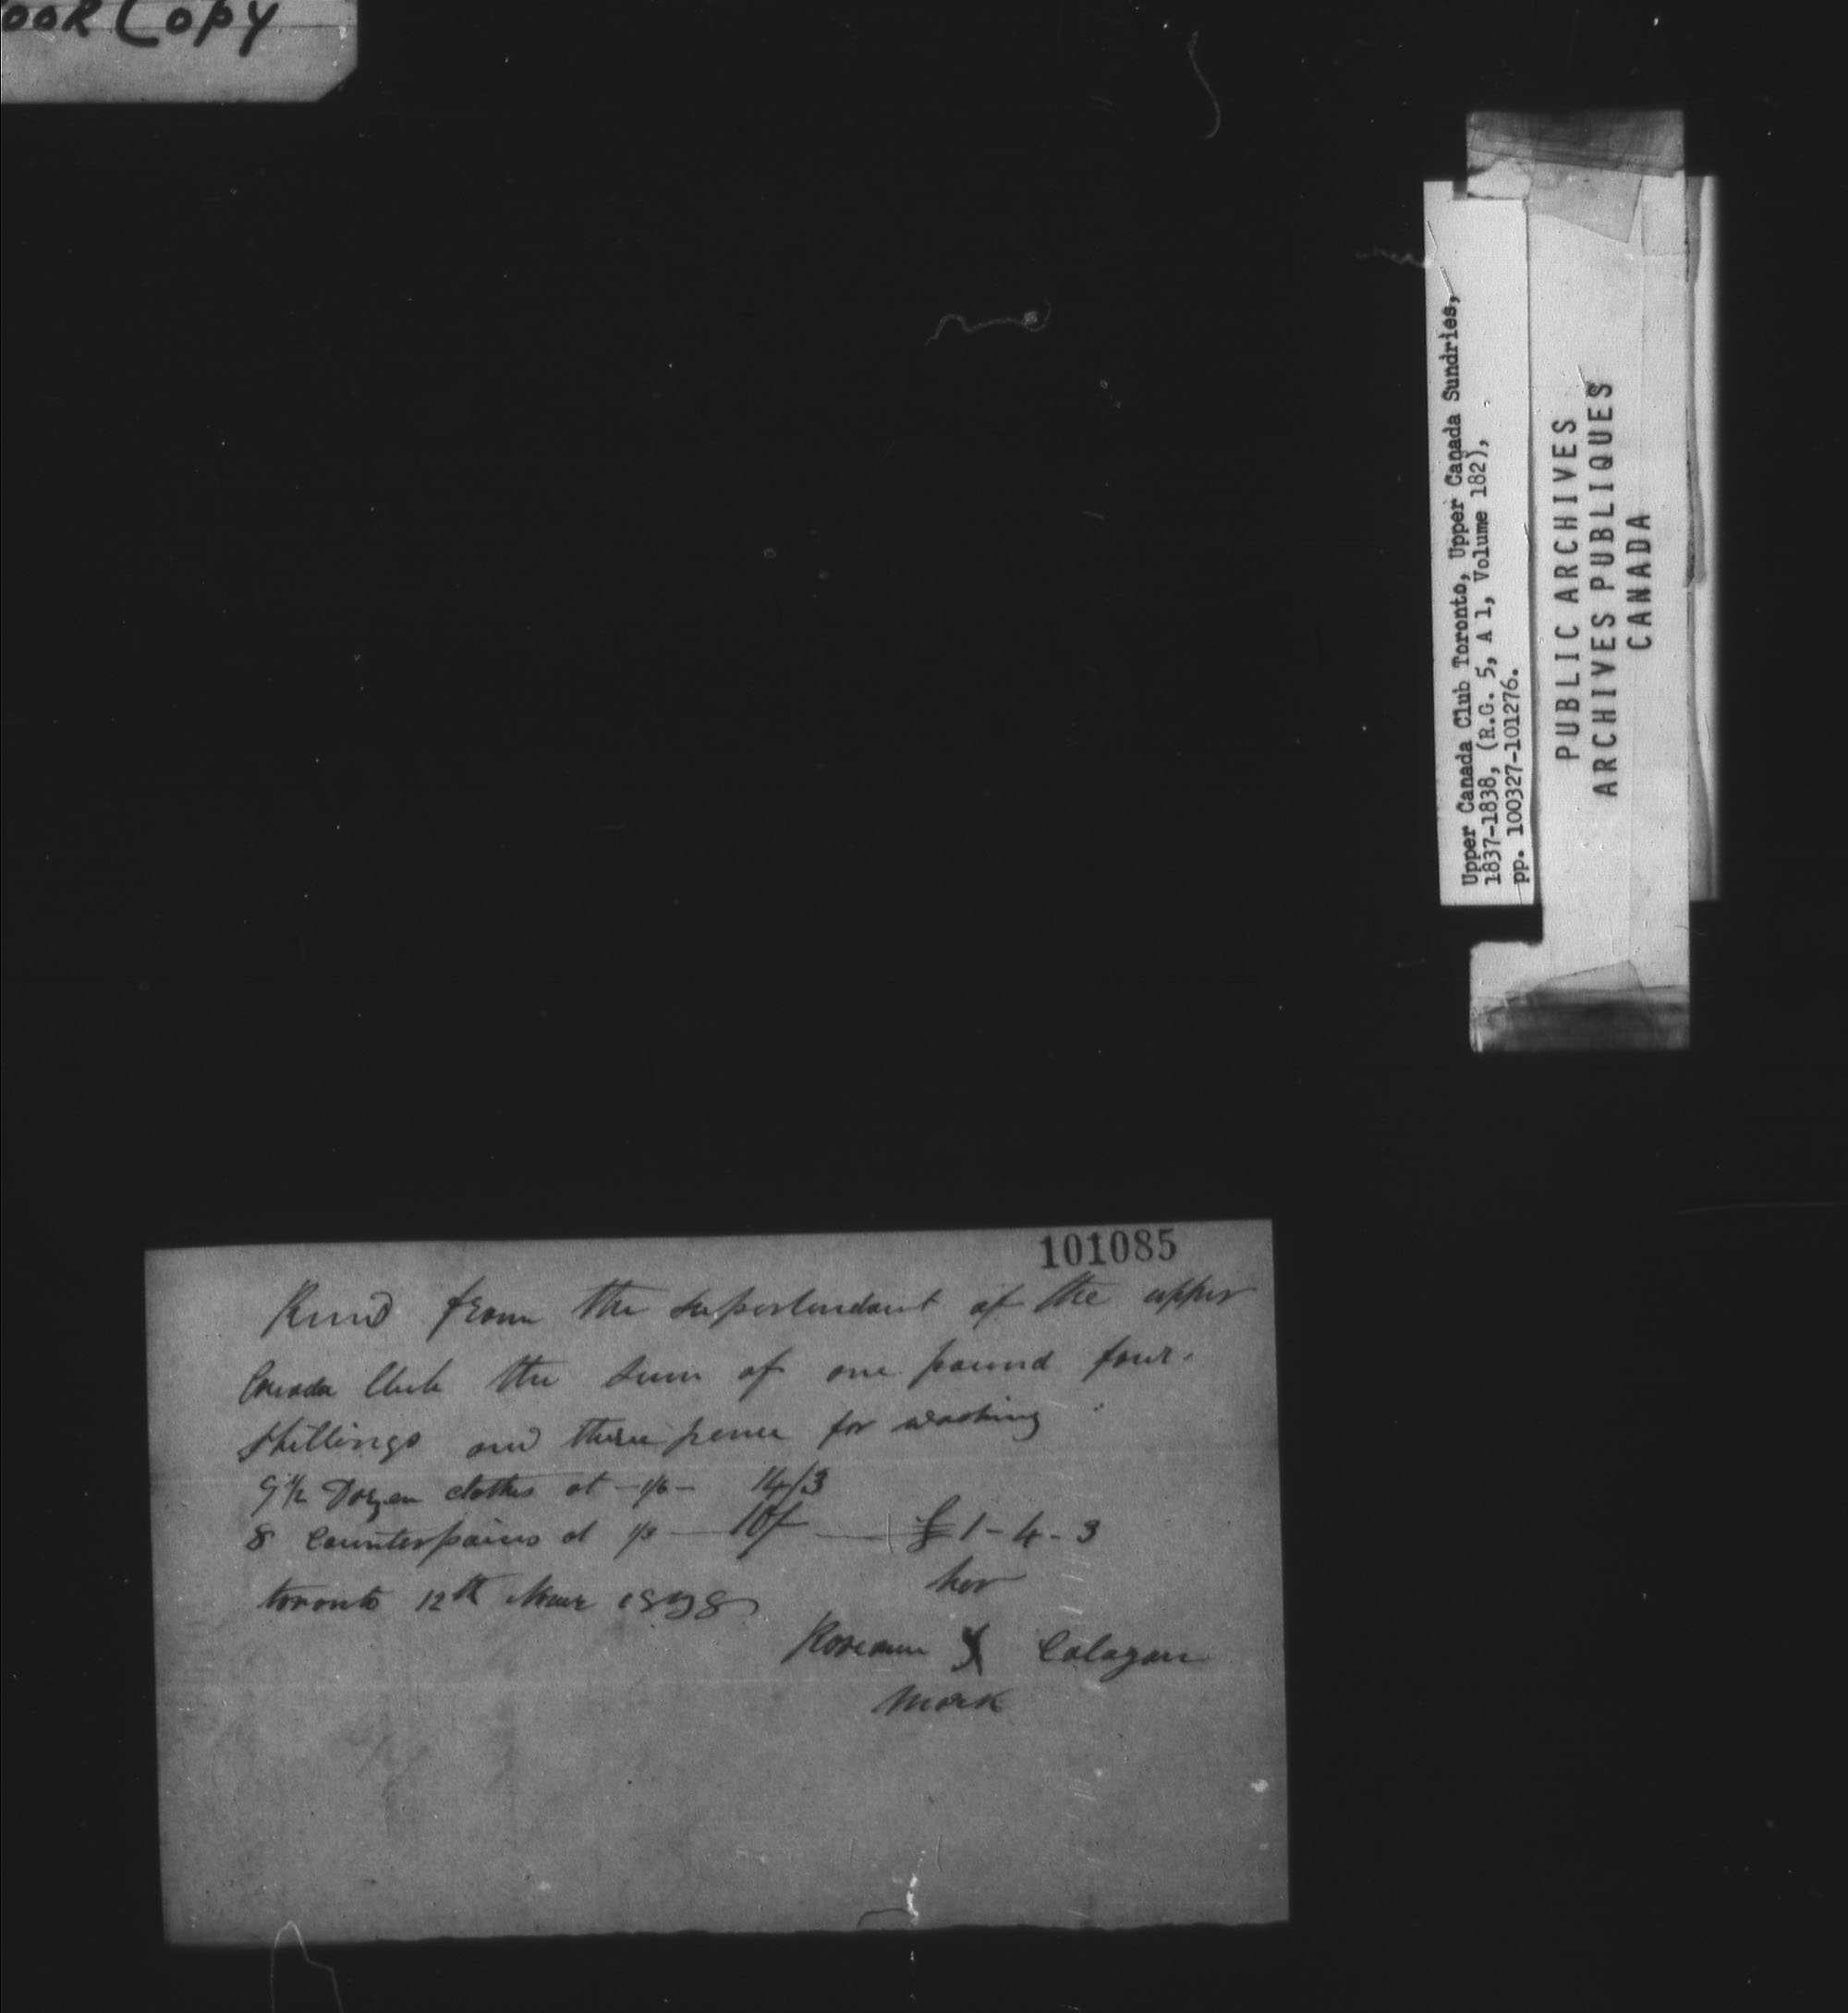 ooR Copy
Upper Canada Club Toronto, Upper Canada Sundries,
1837-1838, (R.G. 5, A 1, Volume 182),
pp. 100327-101276.
PUBLIC ARCHIVES
ARCHIVES PUBLIQUES
CANADA
101085
from the supertendant of the upper
Canada Club the sum of one pound four
shillings and three pence for washing
9½ Dozen clothes at 1/6 14/3
8 Counterpains at 1/3 10/ £1-4-3
toronto 12th 1838
her
Roseann X Calagan
mark